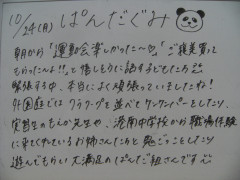 10/24(月) ぱんだぐみ
朝から「運動会楽しかった〜♡」「ご褒美買って
もらったんよ!!」と嬉しそうに話す子どもたち
緊張する中、本当によく頑張っていましたね!
外国庭では フラフープを並べてケンケンパーをしたり、
実習生のもえか先生や、港南中学校から職場体験
に来てくれているお姉さんたちと鬼ごっこしたり
遊んでもらい大満足のぱんだ組さんです